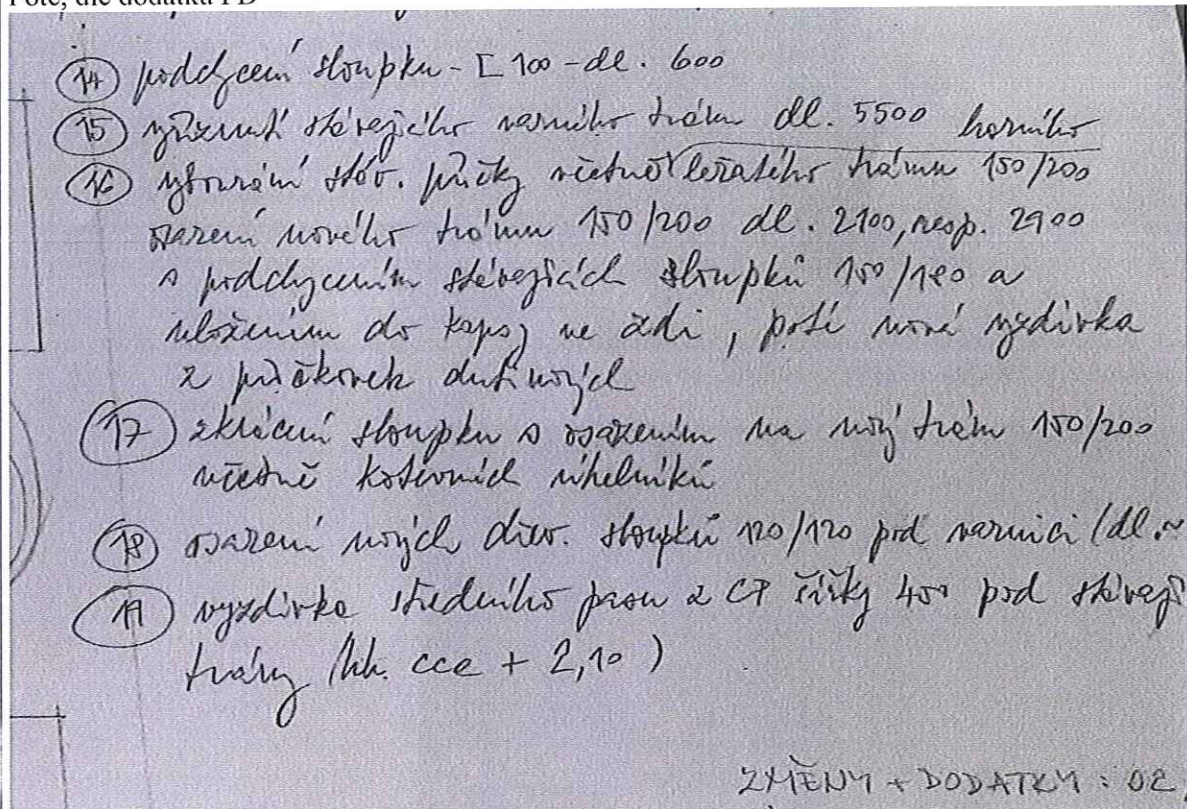 (14) podchycení sloupku - [ 100 - dl. 600
(15) vyříznutí stávajícího vazního trámu dl. 5500 horního
(16) vybourání stáv. příčky včetně ležatého trámu 150/200
osazení nového trámu 150/200 dl. 2100, resp. 2900
s podchycením stávajících sloupků 150/180 a
uložením do kapsy ve zdi, poté nová vyzdívka
z příčkovek dutinových
(17) zkrácení sloupku s osazením na nový trám 150/200
včetně kotevních úhelníků
(18) osazení nových dřev. sloupků 120/120 pod vaznici (dl. ~
(19) vyzdívka středního pasu z CP šířky 400 pod stávají
trámy (hh. cca + 2,10)
ZMĚNY + DODATKY : 02